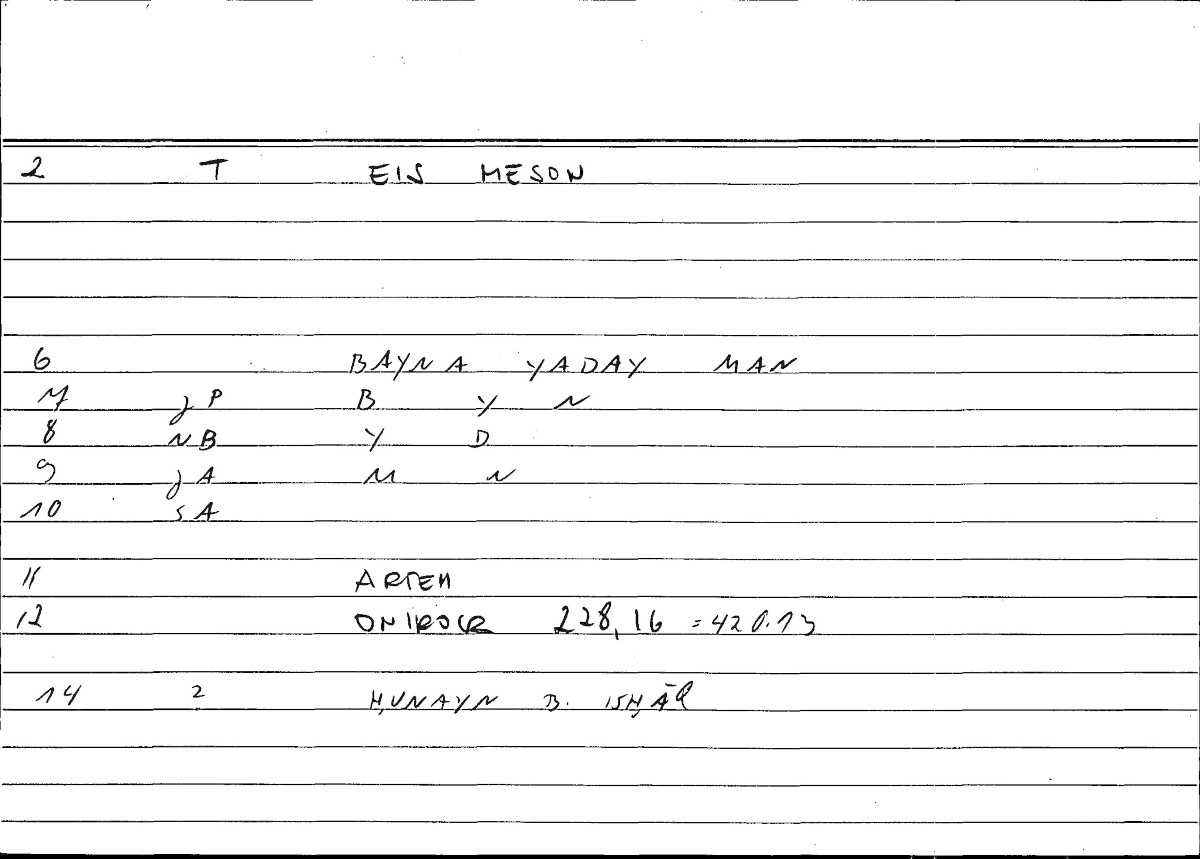 2 T EIS MESON
6 BAYNA YADAY MAN
7 jP B Y N
8 NB Y D
9 jA M N
10 sA
11 ARTEM
12 ONIROCR 228,16 =420.13
14 2 H,UNAYN B. ISH,ĀQ